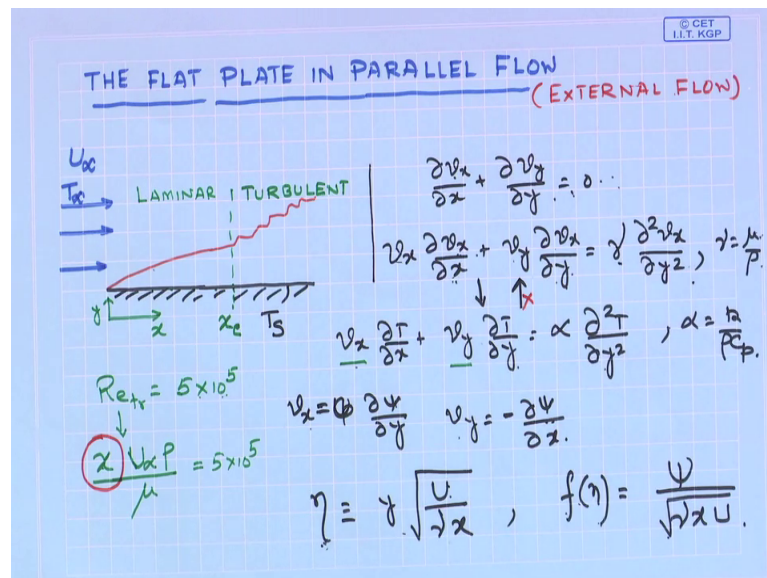 © CET
I.I.T. KGP
THE FLAT PLATE IN PARALLEL FLOW
(EXTERNAL FLOW)
U∞
T∞
LAMINAR | TURBULENT
y
x
x_c T_S
Re_tr = 5×10^5
x U∞ ρ / μ = 5×10^5
∂v_x/∂x + ∂v_y/∂y = 0 ..
v_x ∂v_x/∂x + v_y ∂v_x/∂y = ν ∂²v_x/∂y² , ν = μ/ρ
x
v_x ∂T/∂x + v_y ∂T/∂y = α ∂²T/∂y² , α = k/ρC_p.
v_x = ∂ψ/∂y v_y = - ∂ψ/∂x.
η ≡ y √(U/νx) , f(η) = ψ/√(νxU).